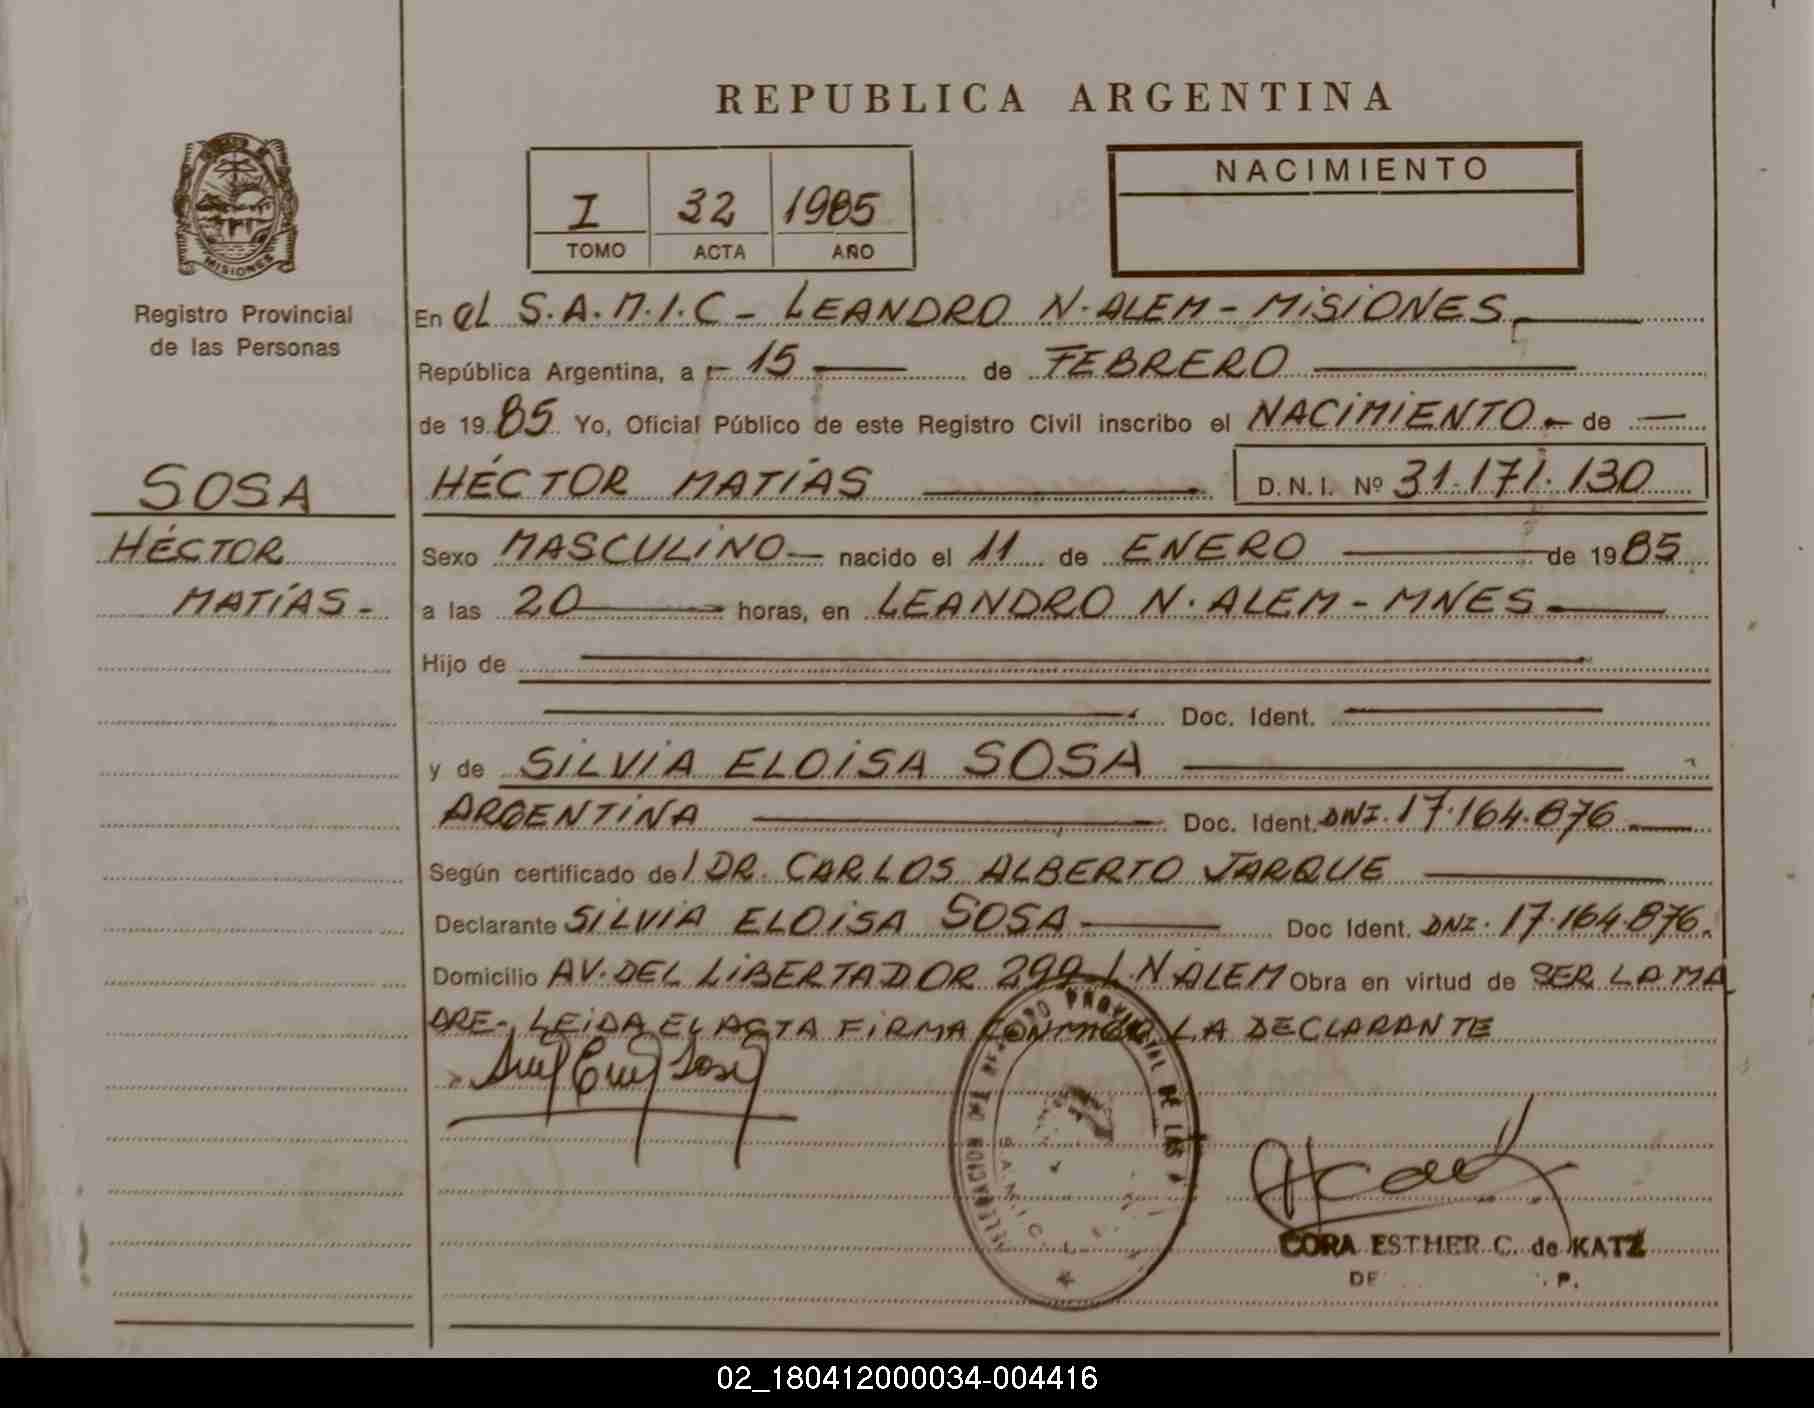 REPUBLICA ARGENTINA
NACIMIENTO
I 32 1985
TOMO ACTA AÑO
MISIONES
Registro Provincial
de las Personas
En el S.A.M.I.C - LEANDRO N. ALEM - MISIONES
República Argentina, a 15 de FEBRERO
de 1985 Yo, Oficial Público de este Registro Civil inscribo el NACIMIENTO de
SOSA
HÉCTOR MATÍAS D.N.I. Nº 31.171.130
HÉCTOR
MATÍAS -
Sexo MASCULINO nacido el 11 de ENERO de 1985
a las 20 horas, en LEANDRO N. ALEM - MNES
Hijo de
Doc. Ident.
y de SILVIA ELOISA SOSA
ARGENTINA Doc. Ident. DNI. 17.164.876
Según certificado del DR. CARLOS ALBERTO JARQUE
Declarante SILVIA ELOISA SOSA Doc Ident. DNI. 17.164.876.
Domicilio AV. DEL LIBERTADOR 299 L.N ALEM Obra en virtud de SER LA MA
DRE-, LEIDA EL ACTA FIRMA CONMIGO LA DECLARANTE
DELEGACION PROVINCIAL DE LAS
S.A.M.I.C.
CORA ESTHER C. de KATZ
02_180412000034-004416